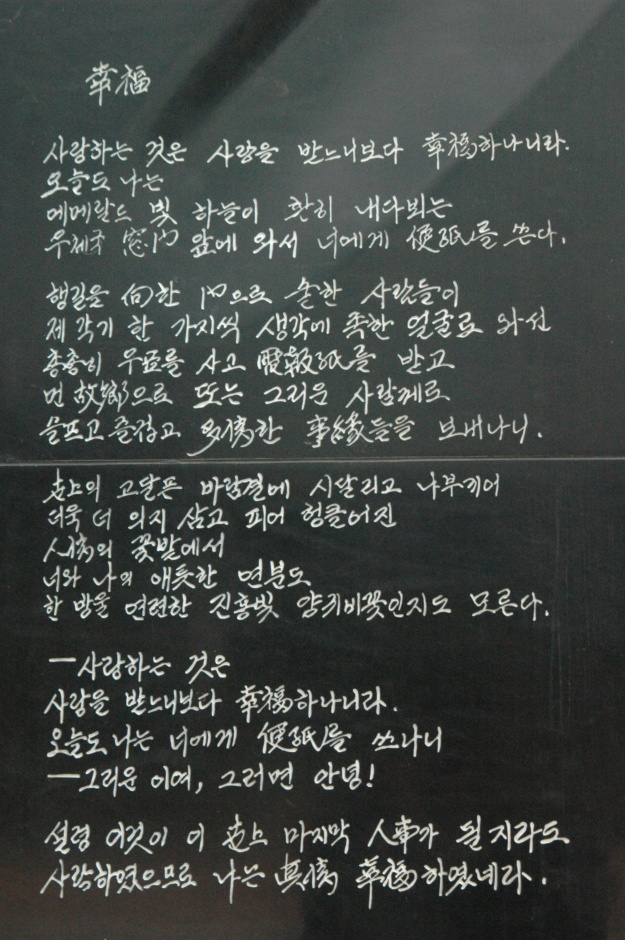 幸福
사랑하는 것은 사랑을 받느니보다 幸福하나니라.
오늘도 나는
에메랄드 빛 하늘이 환히 내다뵈는
우체국 窓門 앞에 와서 너에게 便紙를 쓴다.
행길을 向한 門으로 숱한 사람들이
제각기 한 가지씩 생각에 족한 얼굴로 와선
총총히 우표를 사고 電報紙를 받고
먼 故鄕으로 또는 그리운 사람께로
슬프고 즐겁고 多情한 事緣들을 보내나니.
世上의 고달픈 바람결에 시달리고 나부끼어
더욱 더 의지 삼고 피어 헝클어진
人情의 꽃밭에서
너와 나의 애틋한 연분도
한 방울 연련한 진홍빛 양귀비꽃인지도 모른다.
—사랑하는 것은
사랑을 받느니보다 幸福하나니라.
오늘도 나는 너에게 便紙를 쓰나니
—그리운 이여, 그러면 안녕!
설령 이것이 이 世上 마지막 人事가 될지라도
사랑하였으므로 나는 眞情 幸福하였네라.